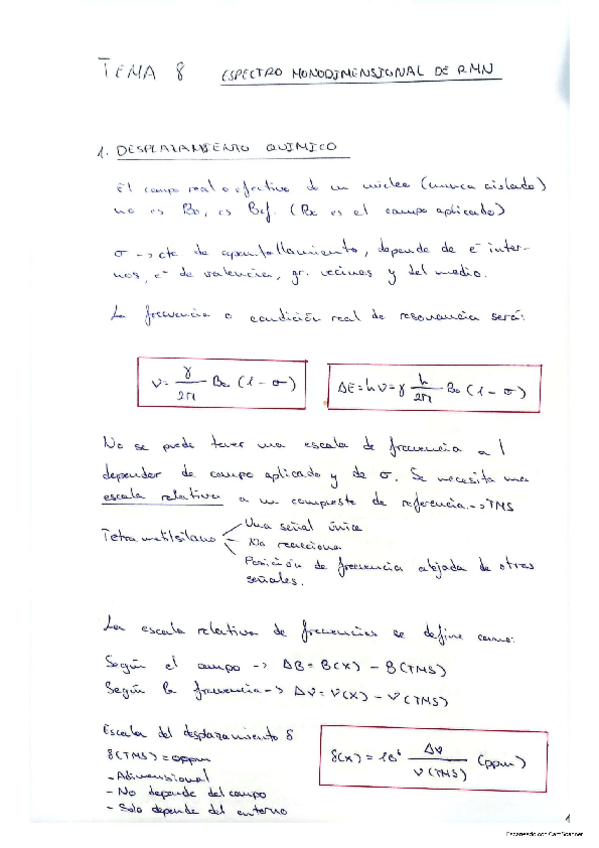 TEMA 8 ESPECTRO MONODIMENSIONAL DE RMN
1. DESPLAZAMIENTO QUIMICO
El campo real o efectivo de un núcleo (nunca aislado)
no es B₀, es Bef. (B₀ es el campo aplicado)
σ -> cte de apantallamiento, depende de e⁻ inter-
nos, e⁻ de valencia, gr. vecinos y del medio.
La frecuencia o condición real de resonancia será:
ν = γ/2π B₀ (1 - σ)
ΔE = hν = γ h/2π B₀ (1 - σ)
No se puede tener una escala de frecuencia al
depender de campo aplicado y de σ. Se necesita una
escala relativa a un compuesto de referencia -> TMS
Tetrametilsilano
Una señal única
No reacciona
Posición de frecuencia alejada de otras
señales.
La escala relativa de frecuencias se define como:
Según el campo -> ΔB = B(X) - B(TMS)
Según la frecuencia -> Δν = ν(X) - ν(TMS)
Escala del desplazamiento δ
δ(TMS) = 0ppm
- Adimensional
- No depende del campo
- Solo depende del entorno
δ(X) = 10⁶ Δν/ν(TMS) (ppm)
1
Escaneado con CamScanner